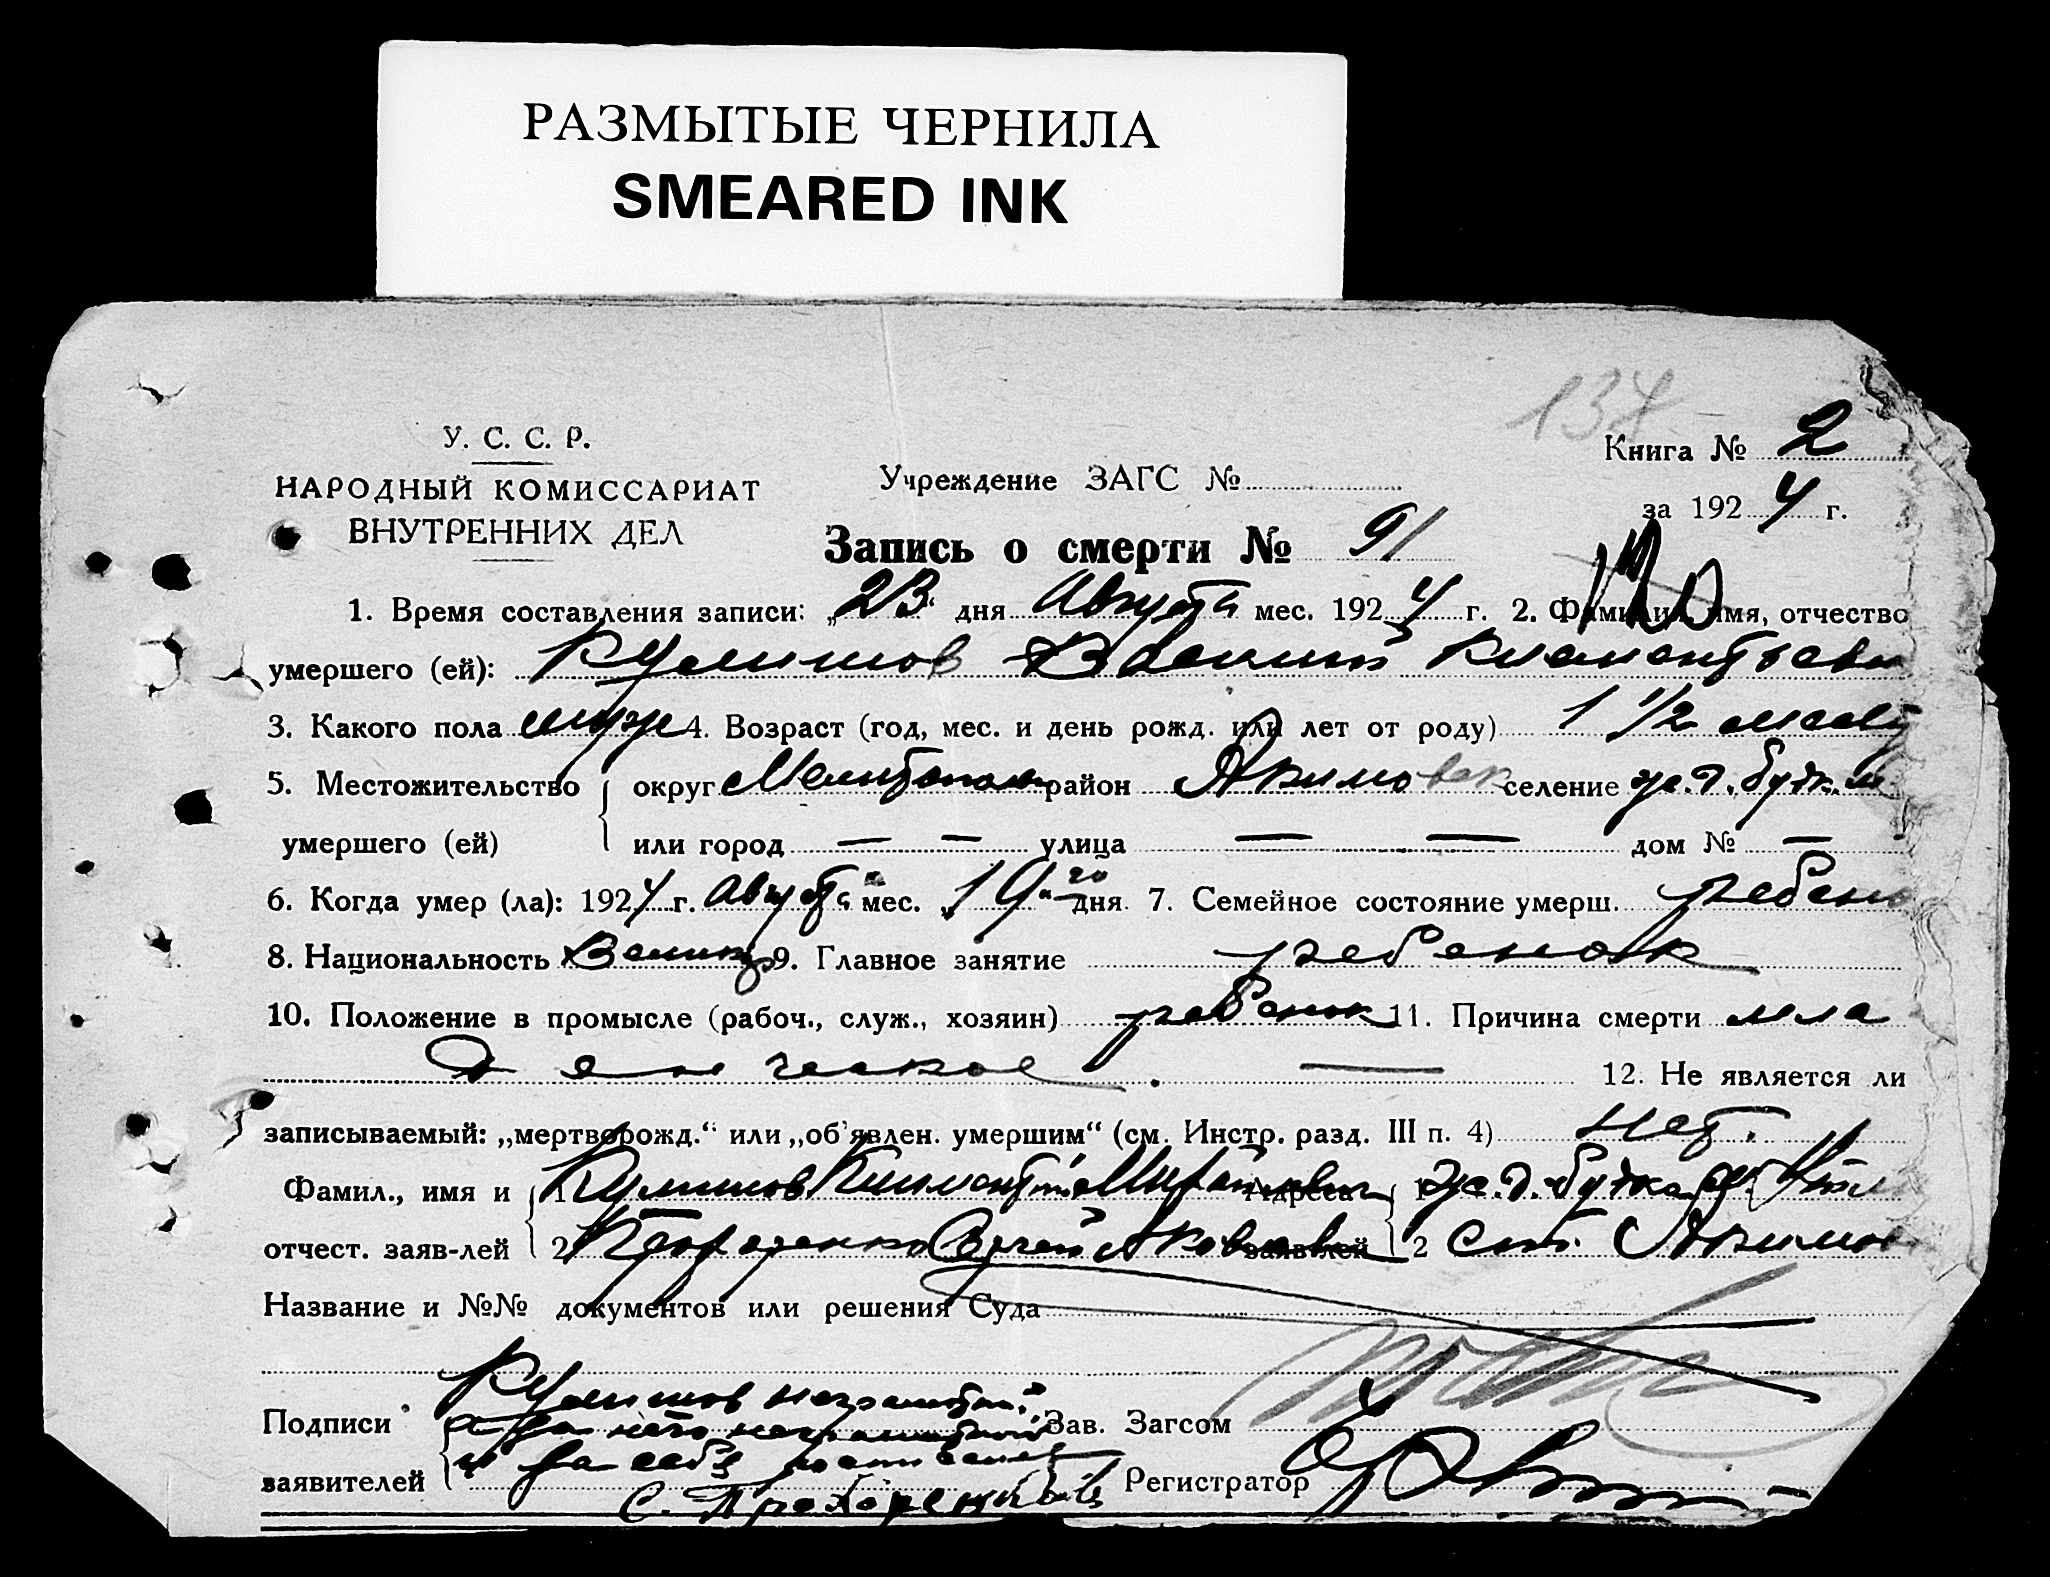 РАЗМЫТЫЕ ЧЕРНИЛА
SMEARED INK
134
У. С. С. Р.
НАРОДНЫЙ КОМИССАРИАТ
ВНУТРЕННИХ ДЕЛ
Книга № 2
Учреждение ЗАГС №
за 1924 г.
Запись о смерти № 91
1. Время составления записи: „23“ дня Августа мес. 1924 г. 2. Фамилия, имя, отчество
умершего (ей): Кулишов
3. Какого пола муж 4. Возраст (год, мес. и день рожд. или лет от роду) 1 1/2 месяц
5. Местожительство округ Мелитополь район Акимовск селение ж.д. будк.
умершего (ей) или город — — улица — — дом № —
6. Когда умер (ла): 1924 г. Августа мес. „19“ го дня 7. Семейное состояние умерш. ребено
8. Национальность Великор 9. Главное занятие ребенок
10. Положение в промысле (рабоч., служ., хозяин) ребенок 11. Причина смерти мла
денческое. — 12. Не является ли
записываемый: „мертворожд.“ или „об'явлен. умершим“ (см. Инстр. разд. III п. 4) нет.
Фамил., имя и 1 Кулишов Адреса 1 ж.д. будка
отчест. заяв-лей 2 Яковлев заяв-лей 2 ст. Акимов
Название и №№ документов или решения Суда
Подписи Кулишов неграмотный
а за него неграмотного Зав. Загсом
заявителей и за себя росписался Регистратор
С. Прохоренков